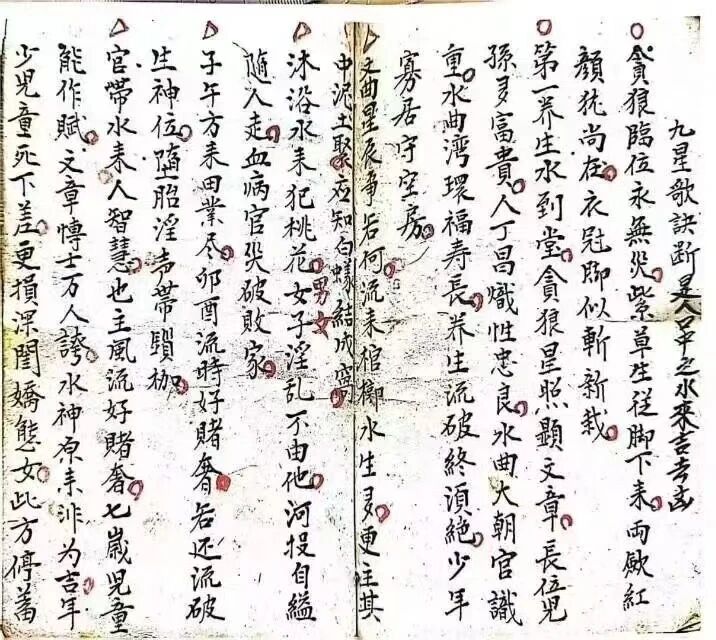 九星歌訣断是合口中之水來吉去凶
貪狼臨位永無災紫草生従脚下来両顋紅
顔犹尚在衣冠脚似斬新栽
第一养生水到堂貪狼星照顕文章長位児
孫多富貴人丁昌熾性忠良水曲大朝官識
重水曲湾環福寿長养生流破終須絶少年
寡居守空房
文曲星辰爭若何流来棺槨水生多更主其
中泥土聚应知白蟻結成窩
沐浴水来犯桃花女子淫乱不由他河投自縊
男女
随人走血病官災破敗家
子午方来田業尽卯酉流時好賭奢若还流破
生神位堕胎淫声帯鎖枷
官帯水来人智慧也主風流好賭奢七歳児童
能作賦文章博士万人誇水神原来非为吉年
少児童死下差更損深閨嬌態女此方停蓄